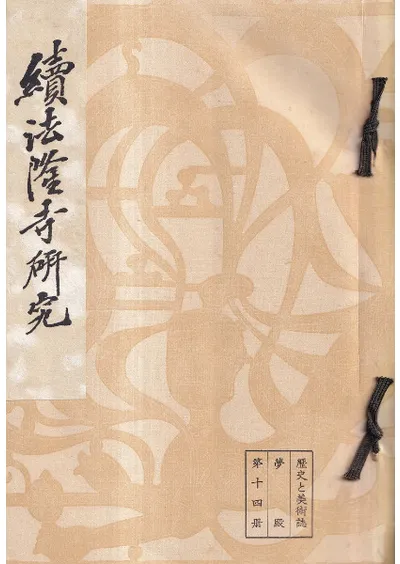 續法隆寺研究
歴史と美術誌
夢殿
第十四册